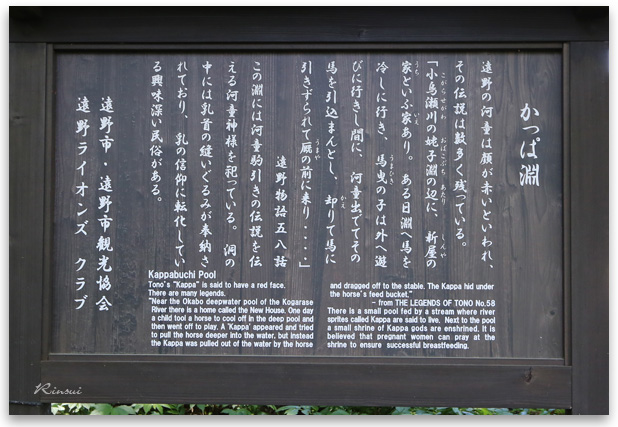 かっぱ淵
遠野の河童は顔が赤いといわれ、
その伝説は数多く残っている。
「小烏瀬川の姥子淵の辺に、新屋の
家といふ家あり。ある日淵へ馬を
冷しに行き、馬曳の子は外へ遊
びに行きし間に、河童出でてその
馬を引込まんとし、却りて馬に
引きずられて厩の前に来り・・・」
遠野物語五八話
この淵には河童駒引きの伝説を伝
える河童神様を祀っている。洞の
中には乳首の縫いぐるみが奉納さ
れており、乳の信仰に転化してい
る興味深い民俗がある。
遠野市・遠野市観光協会
遠野ライオンズ クラブ
Kappabuchi Pool
Tono's "Kappa" is said to have a red face.
There are many legends.
"Near the Okabo deepwater pool of the Kogarase
River there is a home called the New House. One day
a child tool a horse to cool off in the deep pool and
then went off to play. A 'Kappa' appeared and tried
to pull the horse deeper into the water, but instead
the Kappa was pulled out of the water by the horse
and dragged off to the stable. The Kappa hid under
the horse's feed bucket."
- from THE LEGENDS OF TONO No.58
There is a small pool fed by a stream where river
sprites called Kappa are said to live. Next to the pool
a small shrine of Kappa gods are enshrined. It is
believed that pregnant women can pray at the
shrine to ensure successful breastfeeding.
Rinsui